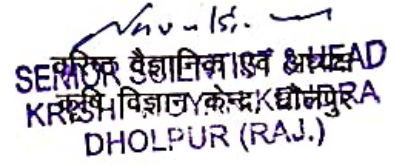 वरिष्ठ वैज्ञानिक एवं अध्यक्ष
SENIOR SCIENTIST & HEAD
कृषि विज्ञान केन्द्र, धौलपुर
KRISHI VIGYAN KENDRA
DHOLPUR (RAJ.)